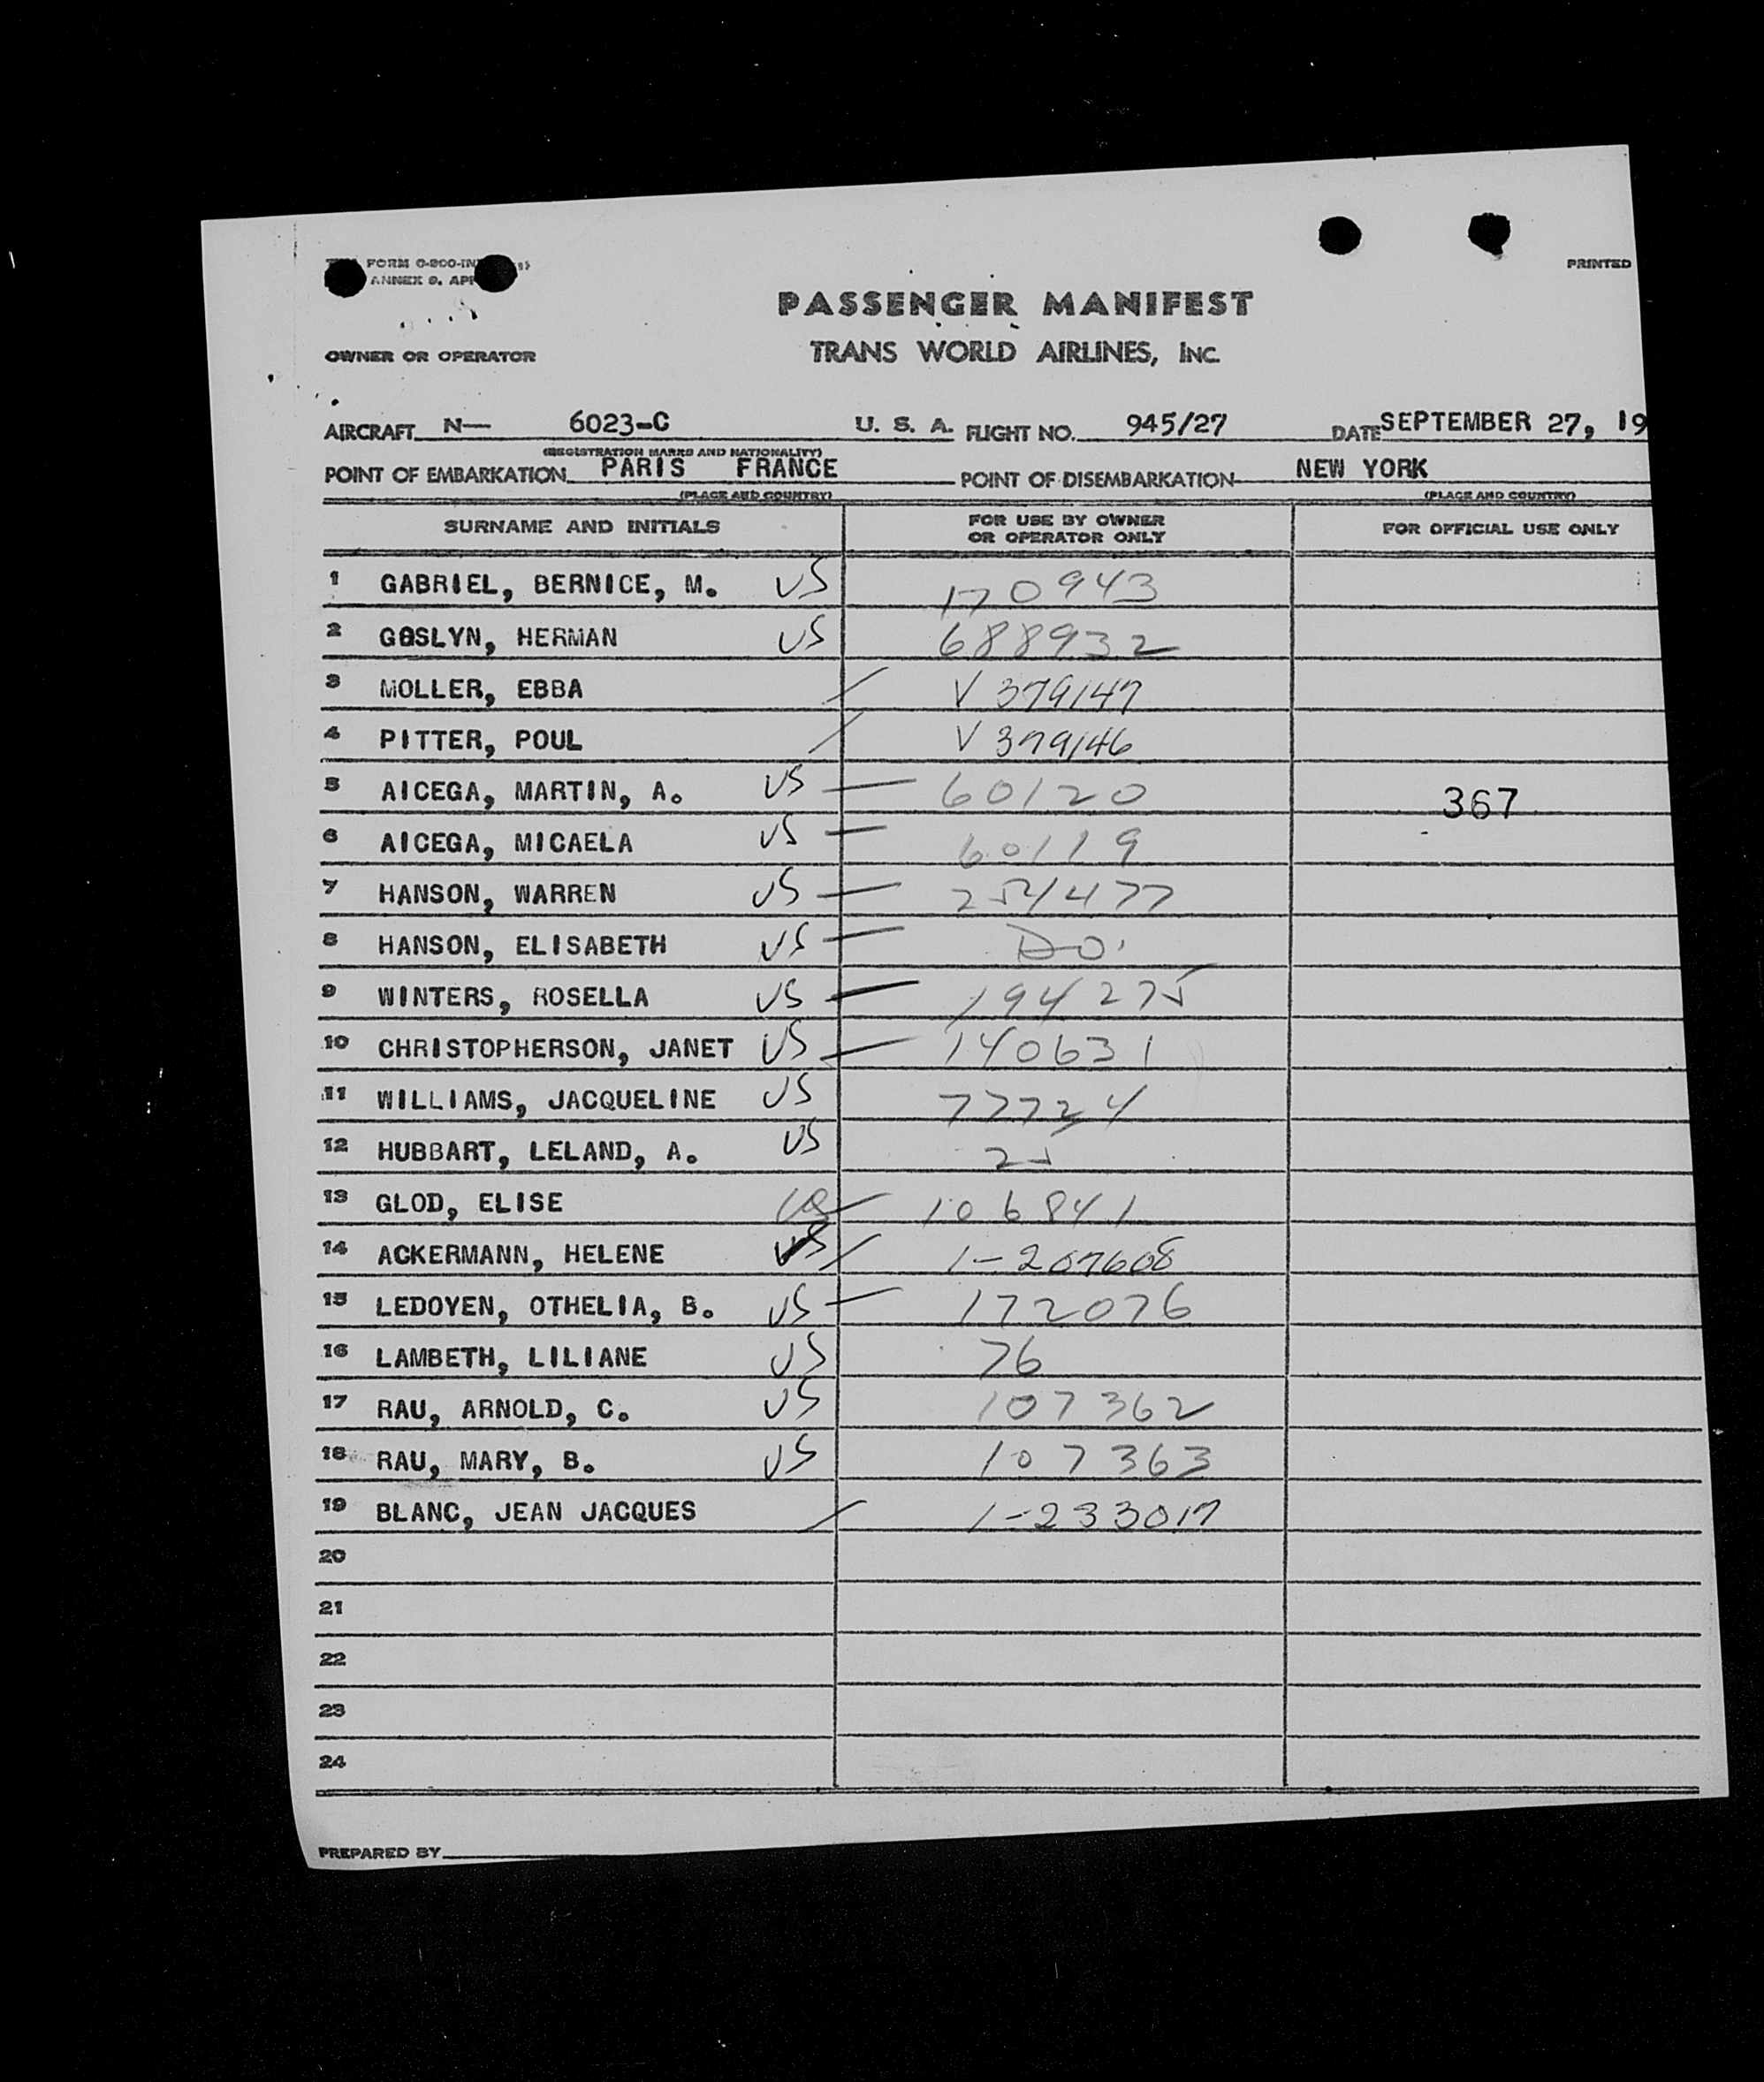 FORM O-800-IN
ANNEX 9, AP
PRINTED
PASSENGER MANIFEST
OWNER OR OPERATOR TRANS WORLD AIRLINES, INC.
AIRCRAFT N— 6023-C U. S. A. FLIGHT NO. 945/27 DATE SEPTEMBER 27, 19
(REGISTRATION MARKS AND NATIONALITY)
POINT OF EMBARKATION PARIS FRANCE POINT OF DISEMBARKATION NEW YORK
(PLACE AND COUNTRY) (PLACE AND COUNTRY)
SURNAME AND INITIALS FOR USE BY OWNER OR OPERATOR ONLY FOR OFFICIAL USE ONLY
1 GABRIEL, BERNICE, M. US 170943
2 GOSLYN, HERMAN US 688932
3 MOLLER, EBBA V 379147
4 PITTER, POUL V 379146
5 AICEGA, MARTIN, A. US 60120 367
6 AICEGA, MICAELA US 60119
7 HANSON, WARREN US 254477
8 HANSON, ELISABETH US DO.
9 WINTERS, ROSELLA US 194275
10 CHRISTOPHERSON, JANET US 140631
11 WILLIAMS, JACQUELINE US 77724
12 HUBBART, LELAND, A. US 25
13 GLOD, ELISE 106841
14 ACKERMANN, HELENE US 1-207608
15 LEDOYEN, OTHELIA, B. US 172076
16 LAMBETH, LILIANE US 76
17 RAU, ARNOLD, C. US 107362
18 RAU, MARY, B. US 107363
19 BLANC, JEAN JACQUES 1-233017
20
21
22
23
24
PREPARED BY